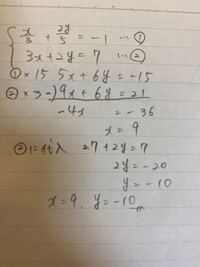 x/3 + 2y/5 = -1 … ①
3x + 2y = 7 … ②
① × 15 5x + 6y = -15
② × 3 -) 9x + 6y = 21
-4x = -36
x = 9
②に代入 27 + 2y = 7
2y = -20
y = -10
x = 9, y = -10